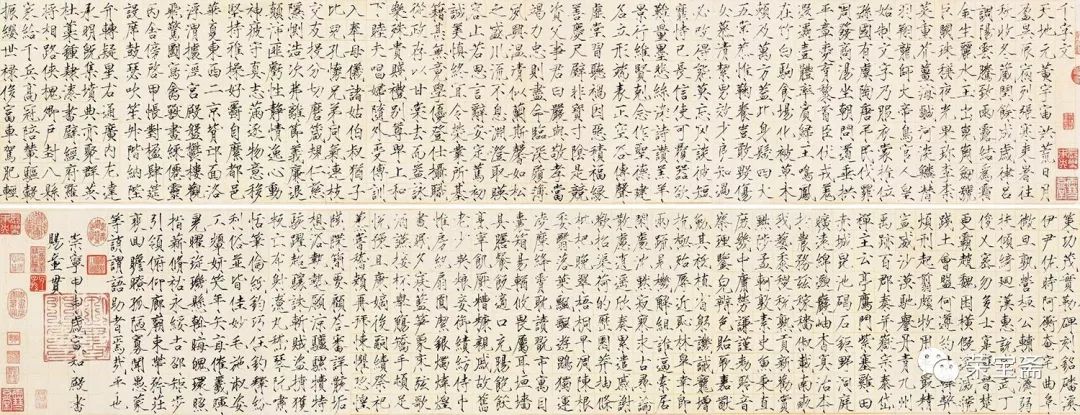 千字文
天地元黃宇宙洪荒日月
盈昃辰宿列張寒來暑往
秋收冬藏閏餘成歲律呂
調陽雲騰致雨露結為霜
金生麗水玉出崑岡劍號
巨闕珠稱夜光果珍李柰
菜重芥薑海鹹河淡鱗潛
羽翔龍師火帝鳥官人皇
始制文字乃服衣裳推位
遜國有虞陶唐弔民伐罪
周發商湯坐朝問道垂拱
平章愛育黎首臣伏戎羌
遐邇壹體率賓歸王鳴鳳
在竹白駒食場化被草木
賴及萬方蓋此身髮四大
五常恭惟鞠養豈敢毀傷
女慕貞潔男效才良知過
必改得能莫忘罔談彼短
靡恃己長信使可覆器欲
難量墨悲絲染詩讚羔羊
景行維賢剋念作聖德建
名立形端表正空谷傳聲
虛堂習聽禍因惡積福緣
善慶尺璧非寶寸陰是競
資父事君曰嚴與敬孝當
竭力忠則盡命臨深履薄
夙興溫凊似蘭斯馨如松
之盛川流不息淵澄取映
容止若思言辭安定篤初
誠美慎終宜令榮業所基
籍甚無竟學優登仕攝職
從政存以甘棠去而益詠
樂殊貴賤禮別尊卑上和
下睦夫唱婦隨外受傅訓
入奉母儀諸姑伯叔猶子
比兒孔懷兄弟同氣連枝
交友投分切磨箴規仁慈
隱惻造次弗離節義廉退
顛沛匪虧性靜情逸心動
神疲守真志滿逐物意移
堅持雅操好爵自縻都邑
華夏東西二京背邙面洛
浮渭據涇宮殿盤鬱樓觀
飛驚圖寫禽獸畫綵仙靈
丙舍傍啟甲帳對楹肆筵
設席鼓瑟吹笙升階納陛
弁轉疑星右通廣內左達
承明既集墳典亦聚群英
杜稿鍾隸漆書壁經府羅
將相路俠槐卿戶封八縣
家給千兵高冠陪輦驅轂
振纓世祿侈富車駕肥輕
策功茂實勒碑刻銘磻溪
伊尹佐時阿衡奄宅曲阜
微旦孰營桓公輔合濟弱
扶傾綺迴漢惠說感武丁
俊乂密勿多士寔寧晉楚
更霸趙魏困橫假途滅虢
踐土會盟何遵約法韓弊
煩刑起翦頗牧用軍最精
宣威沙漠馳譽丹青九州
禹跡百郡秦并嶽宗泰岱
禪主云亭雁門紫塞雞田
赤城昆池碣石鉅野洞庭
曠遠綿邈巖岫杳冥治本
於農務茲稼穡俶載南畝
我藝黍稷稅熟貢新勸賞
黜陟孟軻敦素史魚秉直
庶幾中庸勞謙謹敕聆音
察理鑒貌辨色貽厥嘉猷
勉其祗植省躬譏誡寵增
抗極殆辱近恥林皋幸即
兩疏見機解組誰逼索居
閑處沉默寂寥求古尋論
散慮逍遙欣奏累遣慼謝
歡招渠荷的歷園莽抽條
枇杷晚翠梧桐早凋陳根
委翳落葉飄颻遊鵾獨運
凌摩絳霄耽讀玩市寓目
囊箱易輶攸畏屬耳垣牆
具膳餐飯適口充腸飽飫
烹宰飢厭糟糠親戚故舊
老少異糧妾御績紡侍巾
帷房紈扇圓潔銀燭煒煌
晝眠夕寐藍筍象床弦歌
酒讌接杯舉觴矯手頓足
悅豫且康嫡後嗣續祭祀
蒸嘗稽顙再拜悚懼恐惶
牋牒簡要顧答審詳骸垢
想浴執熱願涼驢騾犢特
駭躍超驤誅斬賊盜捕獲
叛亡布射遼丸嵇琴阮嘯
恬筆倫紙鈞巧任釣釋紛
利俗並皆佳妙毛施淑姿
工顰妍笑年矢每催曦暉
晃曜旋璣懸斡晦魄環照
指薪修祜永綏吉劭矩步
引領俯仰廊廟束帶矜莊
徘徊瞻眺孤陋寡聞愚蒙
等誚謂語助者焉哉乎也
崇寧甲申歲宣和殿書
賜童貫
榮宝斋